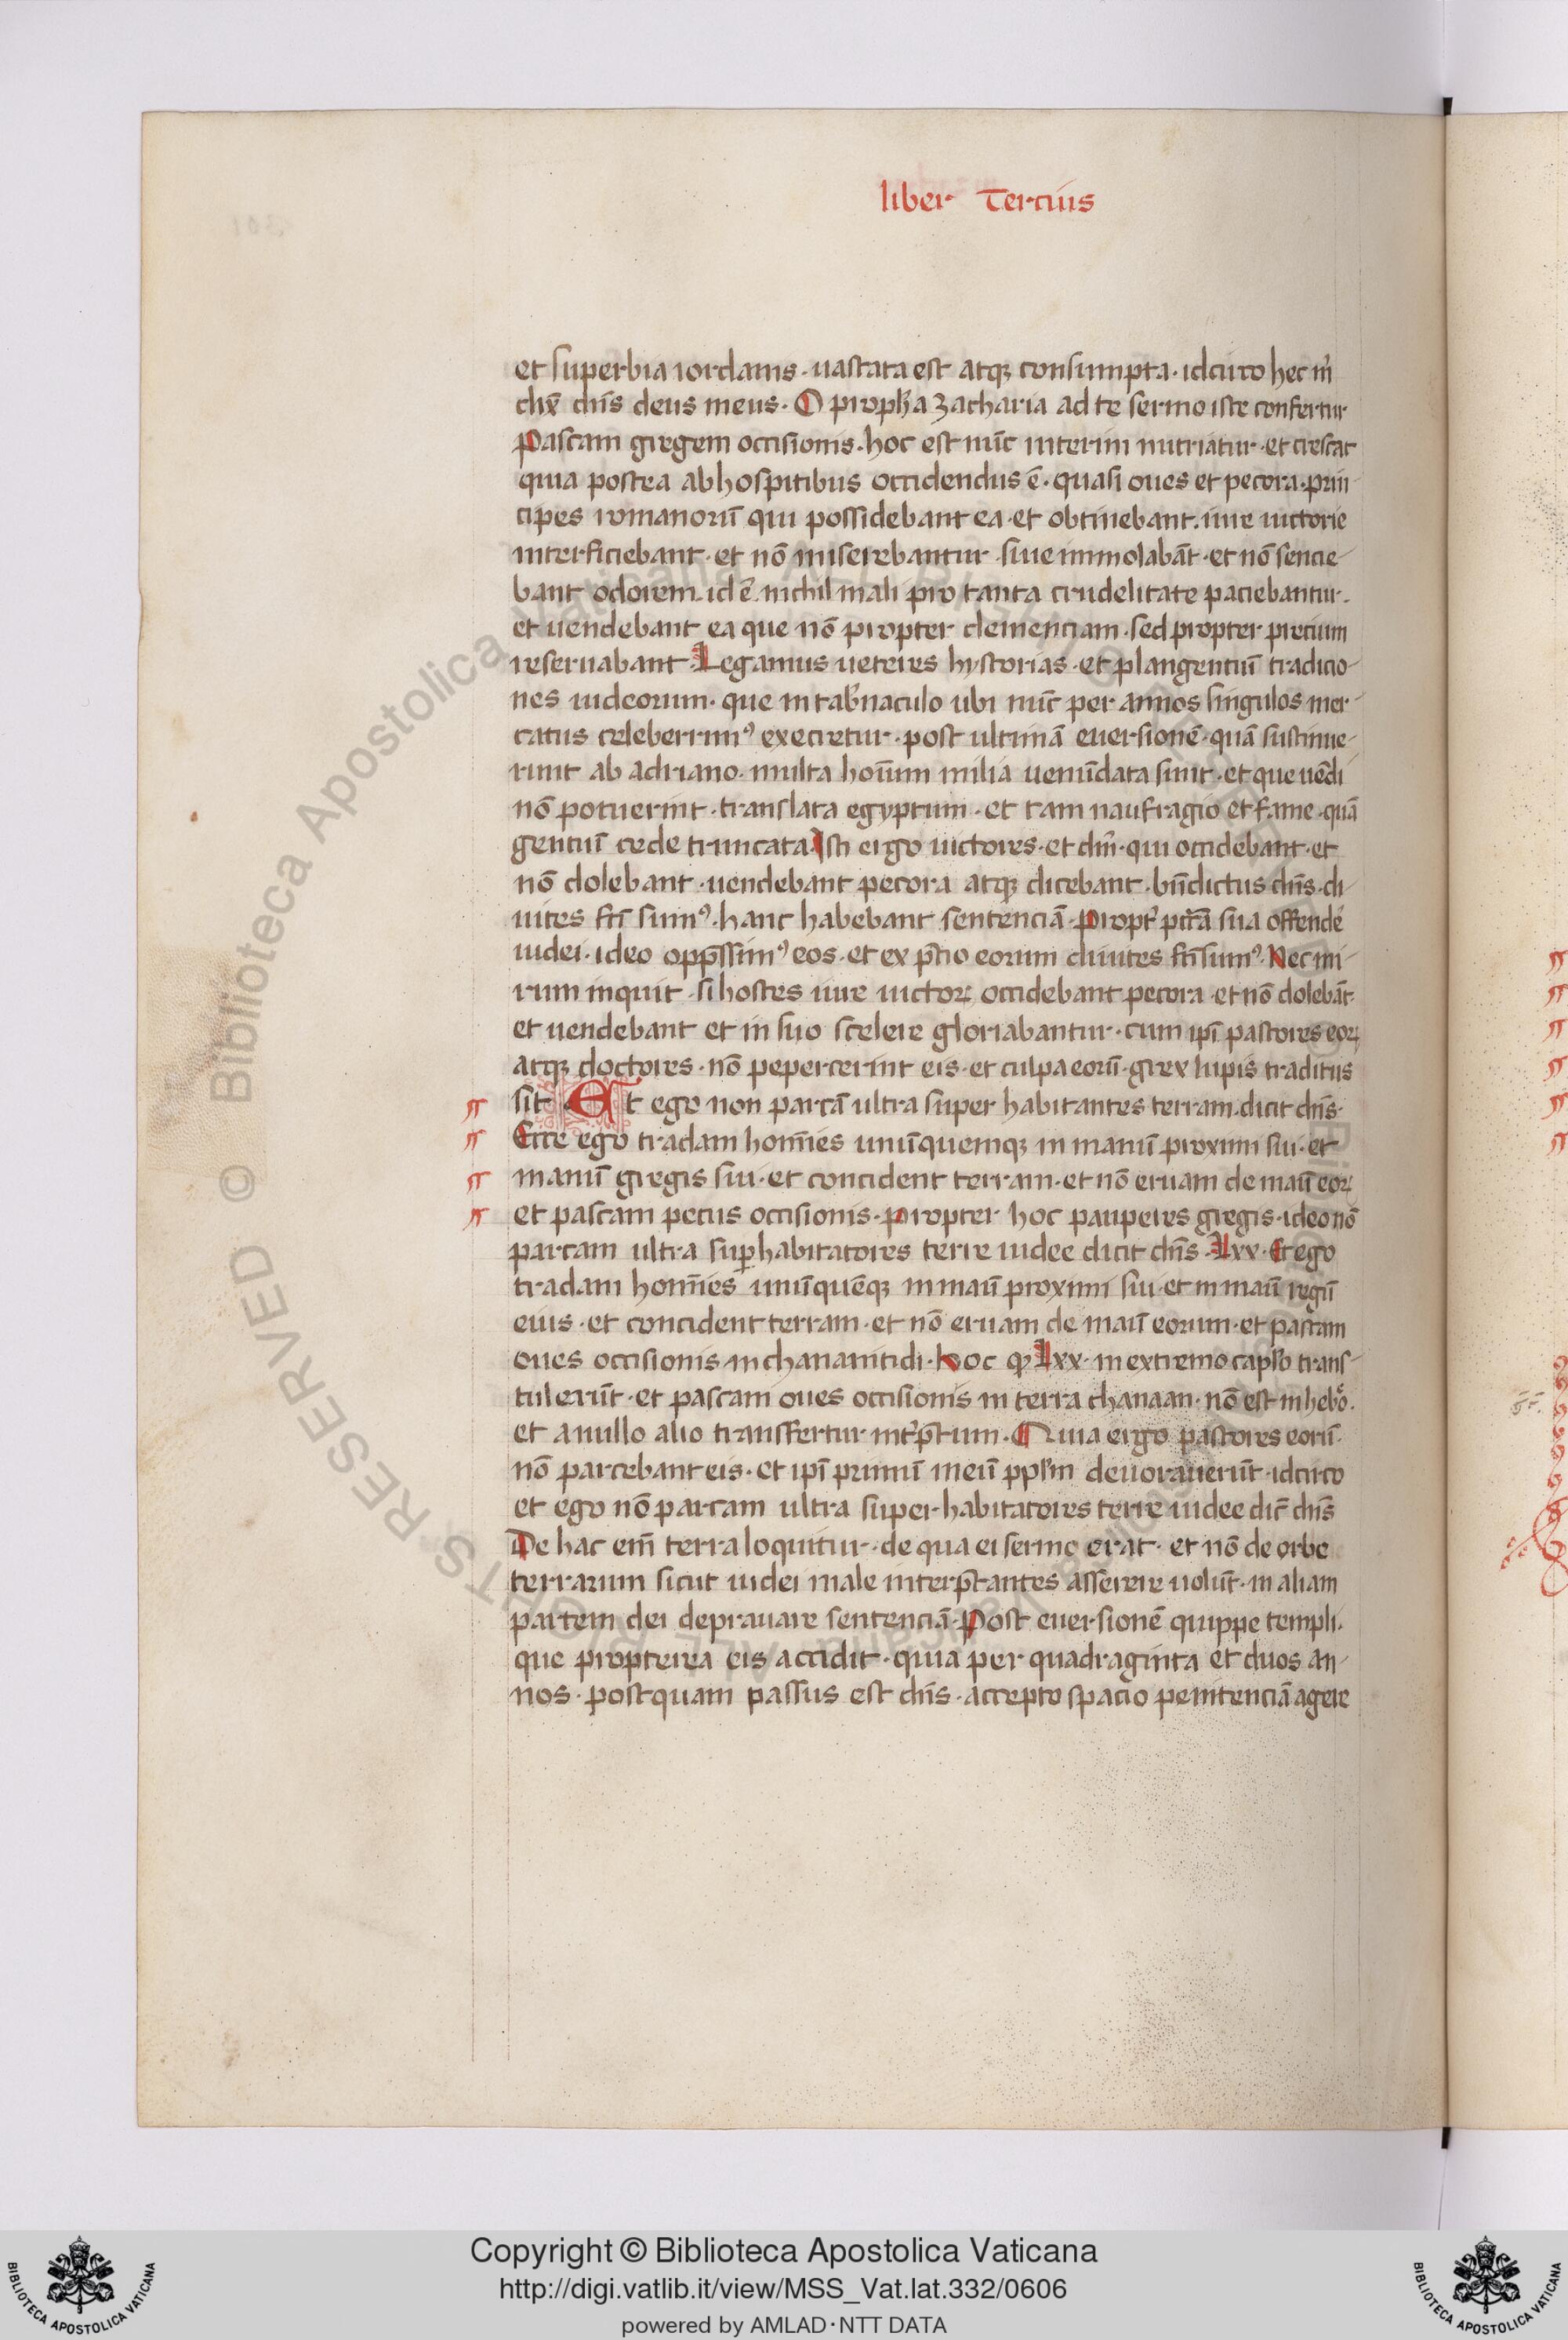 liber Tercius
et superbia iordanis · uastata est atq; consumpta · idcirco hec m̄
dix̄ dn̄s deus meus · O proph̄a zacharia ad te sermo iste confertur
Pascam gregem occisionis · hoc est nūc interim nutriatur · et crescat
quia postea ab hospitibus occidendus ē · quasi oues et pecora · prin-
cipes romanorū qui possidebant ea · et obtinebant · iure uictorie
interficiebant · et nō miserebantur · siue immolabāt · et nō sencie-
bant odorem · id ē · nichil mali pro tanta crudelitate paciebantur ·
et uendebant ea que nō propter clemenciam · sed propter precium
reseruabant · Legamus ueteres hystorias · et plangentiū tradicio-
nes iudeorum · que in tab̄naculo ubi nūc per annos singulos mer-
catus celeberrimꝰ exercetur · post ultimā euersionē · quā sustinue-
runt ab adriano · multa hoīum milia uenūdata sunt · et que uēdi
nō potuerint · translata egyptum · et tam naufragio et fame · quā
gentiū cede truncata · Isti ergo uictores · et dn̄i · qui occidebant · et
nō dolebant · uendebant pecora atq; dicebant · bn̄dictus dn̄s · di-
uites fc̄i sumꝰ · hanc habebant sentenciā · Propt̄ pcc̄ā sua offende
iudei · ideo opp̄ssimꝰ eos · et ex p̄cio eorum diuites fc̄i sumꝰ · Nec mi-
rum inquit · si hostes iure uictoꝝ occidebant pecora · et nō dolebāt ·
et uendebant et in suo scelere gloriabantur · cum ip̄i pastores eoꝝ
atq; doctores · nō pepercerint eis · et culpa eorū · grex lupis traditus
sit Et ego non parcā ultra super habitantes terram · dicit dn̄s ·
Ecce ego tradam homīes unūquemq; in manū proximi sui · et
manū gregis sui · et concident terram · et nō eruam de manū eoꝝ
et pascam pecus occisionis · propter hoc pauperes gregis · ideo nō
parcam ultra suꝑ habitatores terre iudee dicit dn̄s · Lxx · Et ego
tradam homīes unūquēq; in manū proximi sui · et in manū regū
eius · et concident terram · et nō eruam de manū eorum · et pascam
oues occisionis in chananitidi · hoc qꝫ Lxx · in extremo capl̄o trans-
tulerūt · et pascam oues occisionis in terra chanaan · nō est in hebo ·
et a nullo alio transfertur int̄p̄tum · Quia ergo pastores eorū ·
nō parcebant eis · et ip̄i primū meū ppl̄m deuorauerūt · idcirco
et ego nō parcam ultra super habitatores terre iudee dic̄ dn̄s
De hac em̄ terra loquitur · de qua ei sermo erat · et nō de orbe
terrarum sicut iudei male interp̄tantes asserere uolūt · in aliam
partem dei deprauare sentenciā · Post euersionē quippe templi ·
que propterea eis accidit · quia per quadraginta et duos an-
nos · postquam passus est dn̄s · accepto spacio penitenciā agere
© Biblioteca Apostolica Vaticana
ALL RIGHTS RESERVED
Copyright © Biblioteca Apostolica Vaticana
http://digi.vatlib.it/view/MSS_Vat.lat.332/0606
powered by AMLAD · NTT DATA
BIBLIOTECA APOSTOLICA VATICANA
BIBLIOTECA APOSTOLICA VATICANA